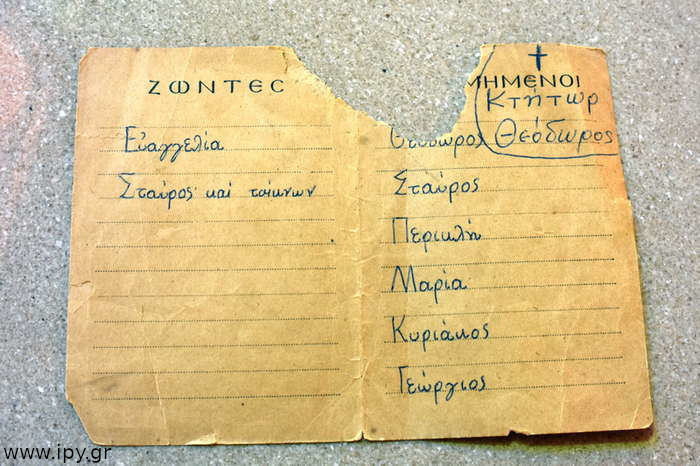 ΖΩΝΤΕC
Εὐαγγελία
Σταῦρος καί τσίκνων
ΜΗΜΕΝΟΙ
Κτήτωρ
Θεόδωρος
Θεόδωρος
Σταῦρος
Περικλῆ
Μαρία
Κυριάκος
Γεώργιος
www.ipy.gr